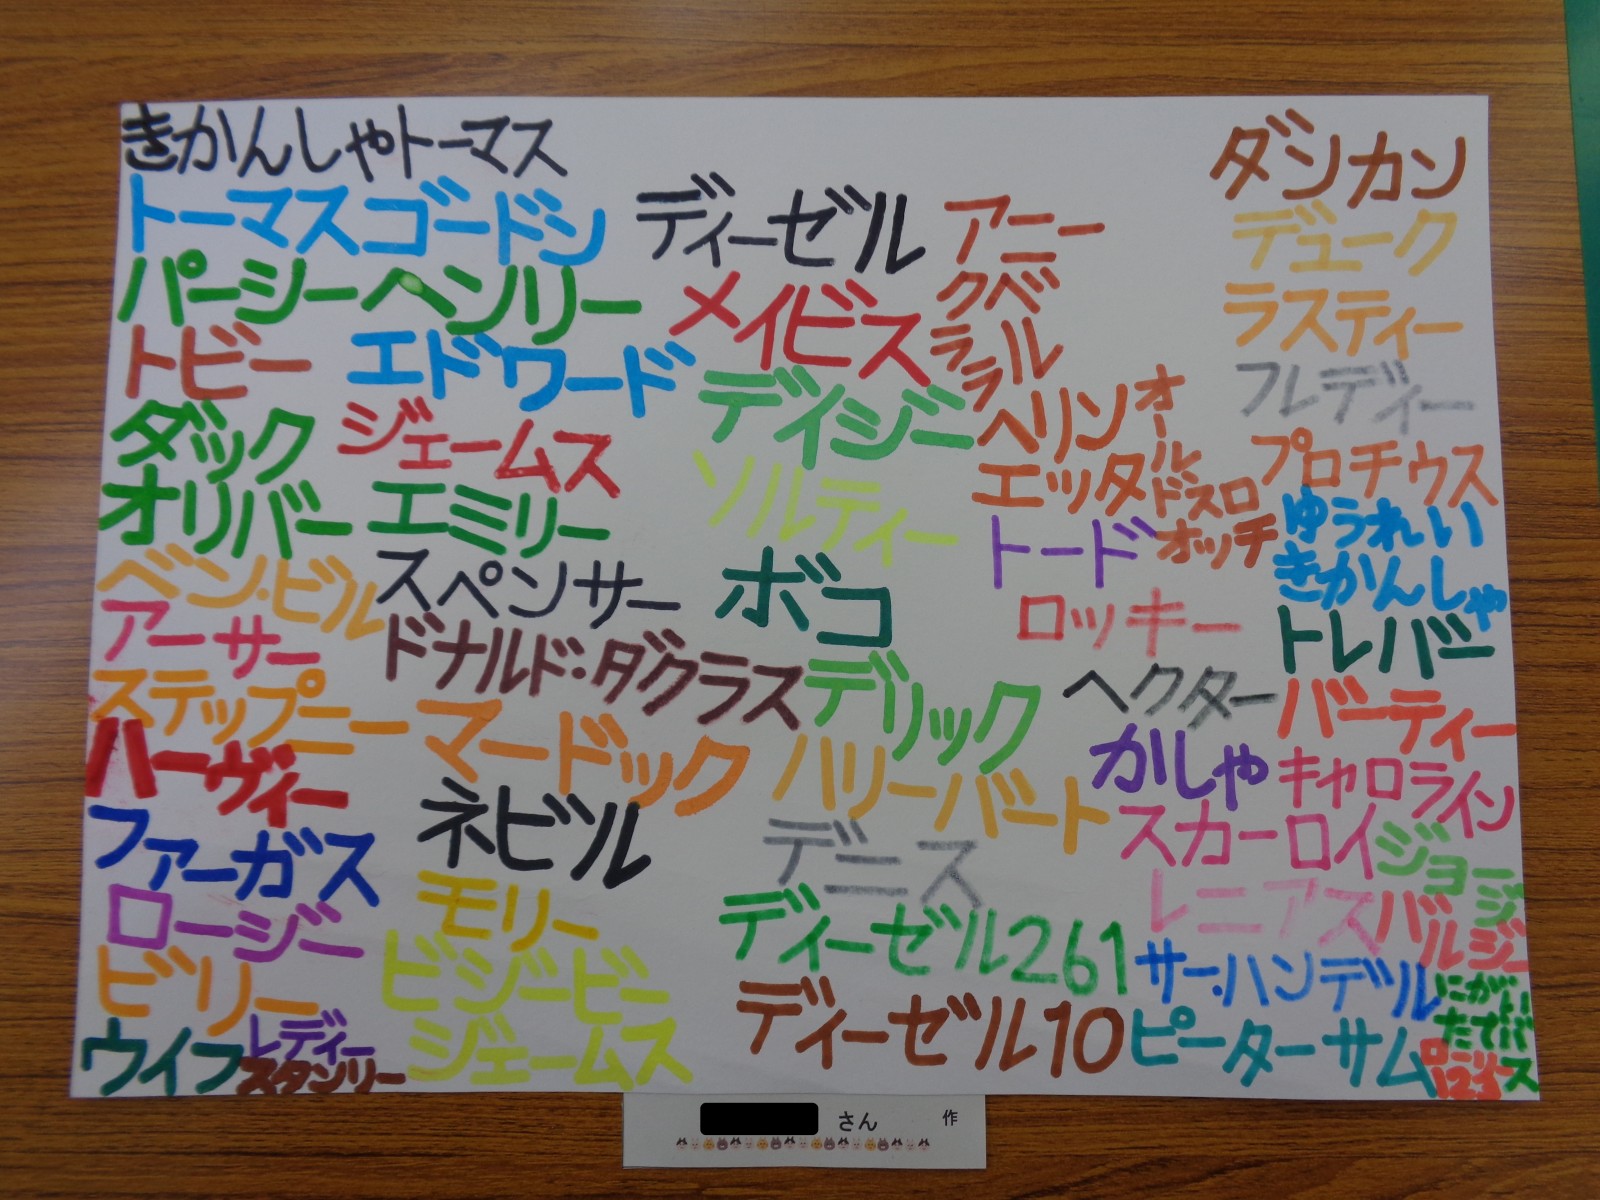 きかんしゃトーマス
トーマス ゴードン
パーシー ヘンリー
トビー エドワード
ダック ジェームス
オリバー エミリー
ベン・ビル スペンサー
アーサー ドナルド・ダグラス
ステップニー マードック
ハーヴィー
ファーガス ネビル
ロージー モリー
ビリー ビジービー
ウイフ レディー ジェームス
スタンリー
ディーゼル
メイビス
デイジー
ソルティー
ボコ
デリック
ハリーバート
デニス
ディーゼル261
ディーゼル10
アニー
クベ
ラル
ラ
ヘリン
エッタ
オールドスロ
オッチ
トード
ロッキー
ヘクター
かしゃ
ダンカン
デューク
ラスティー
フレディー
プロチウス
ゆうれい
きかんしゃ
トレバー
バーティー
キャロライン
スカーロイ
ジョージ
レニアス
バルジー
サー・ハンデル
ピーターサム
さん 作